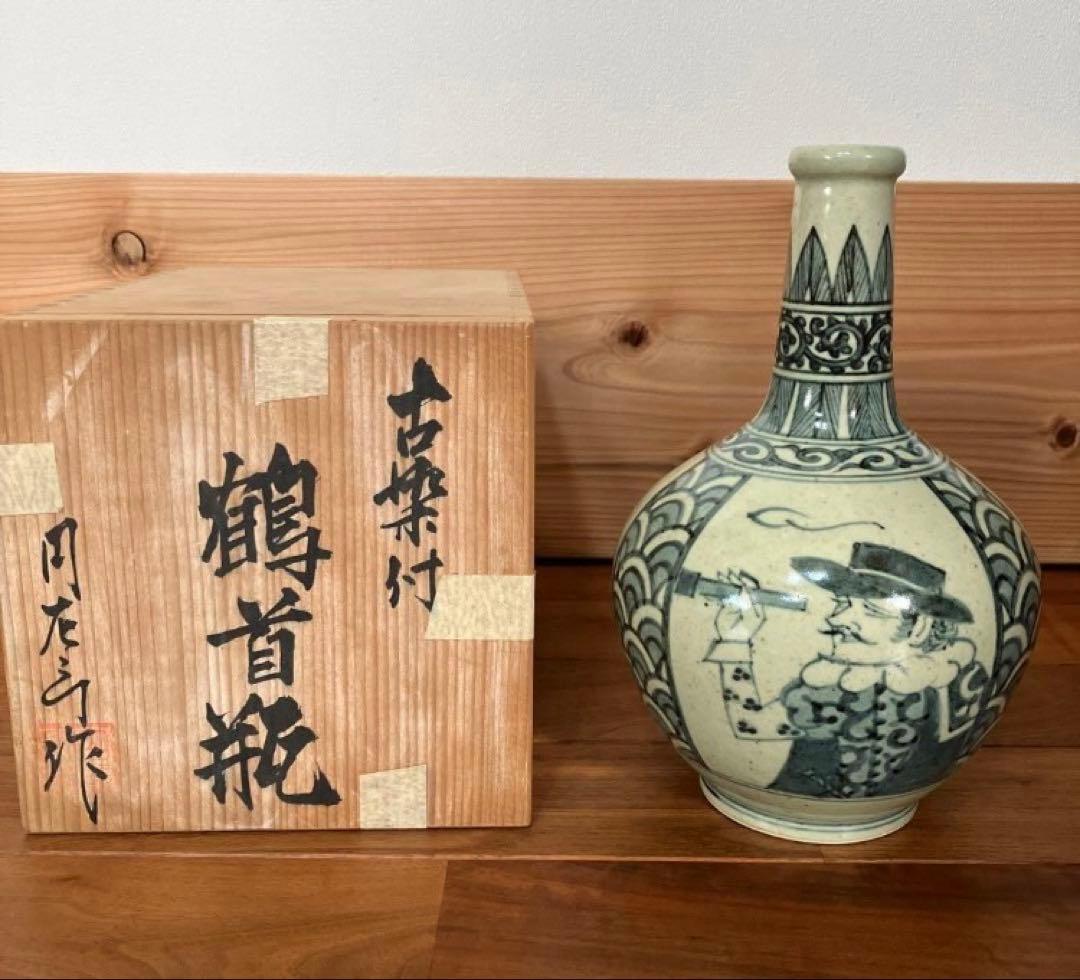 古染付
鶴首瓶
円左ヱ门作